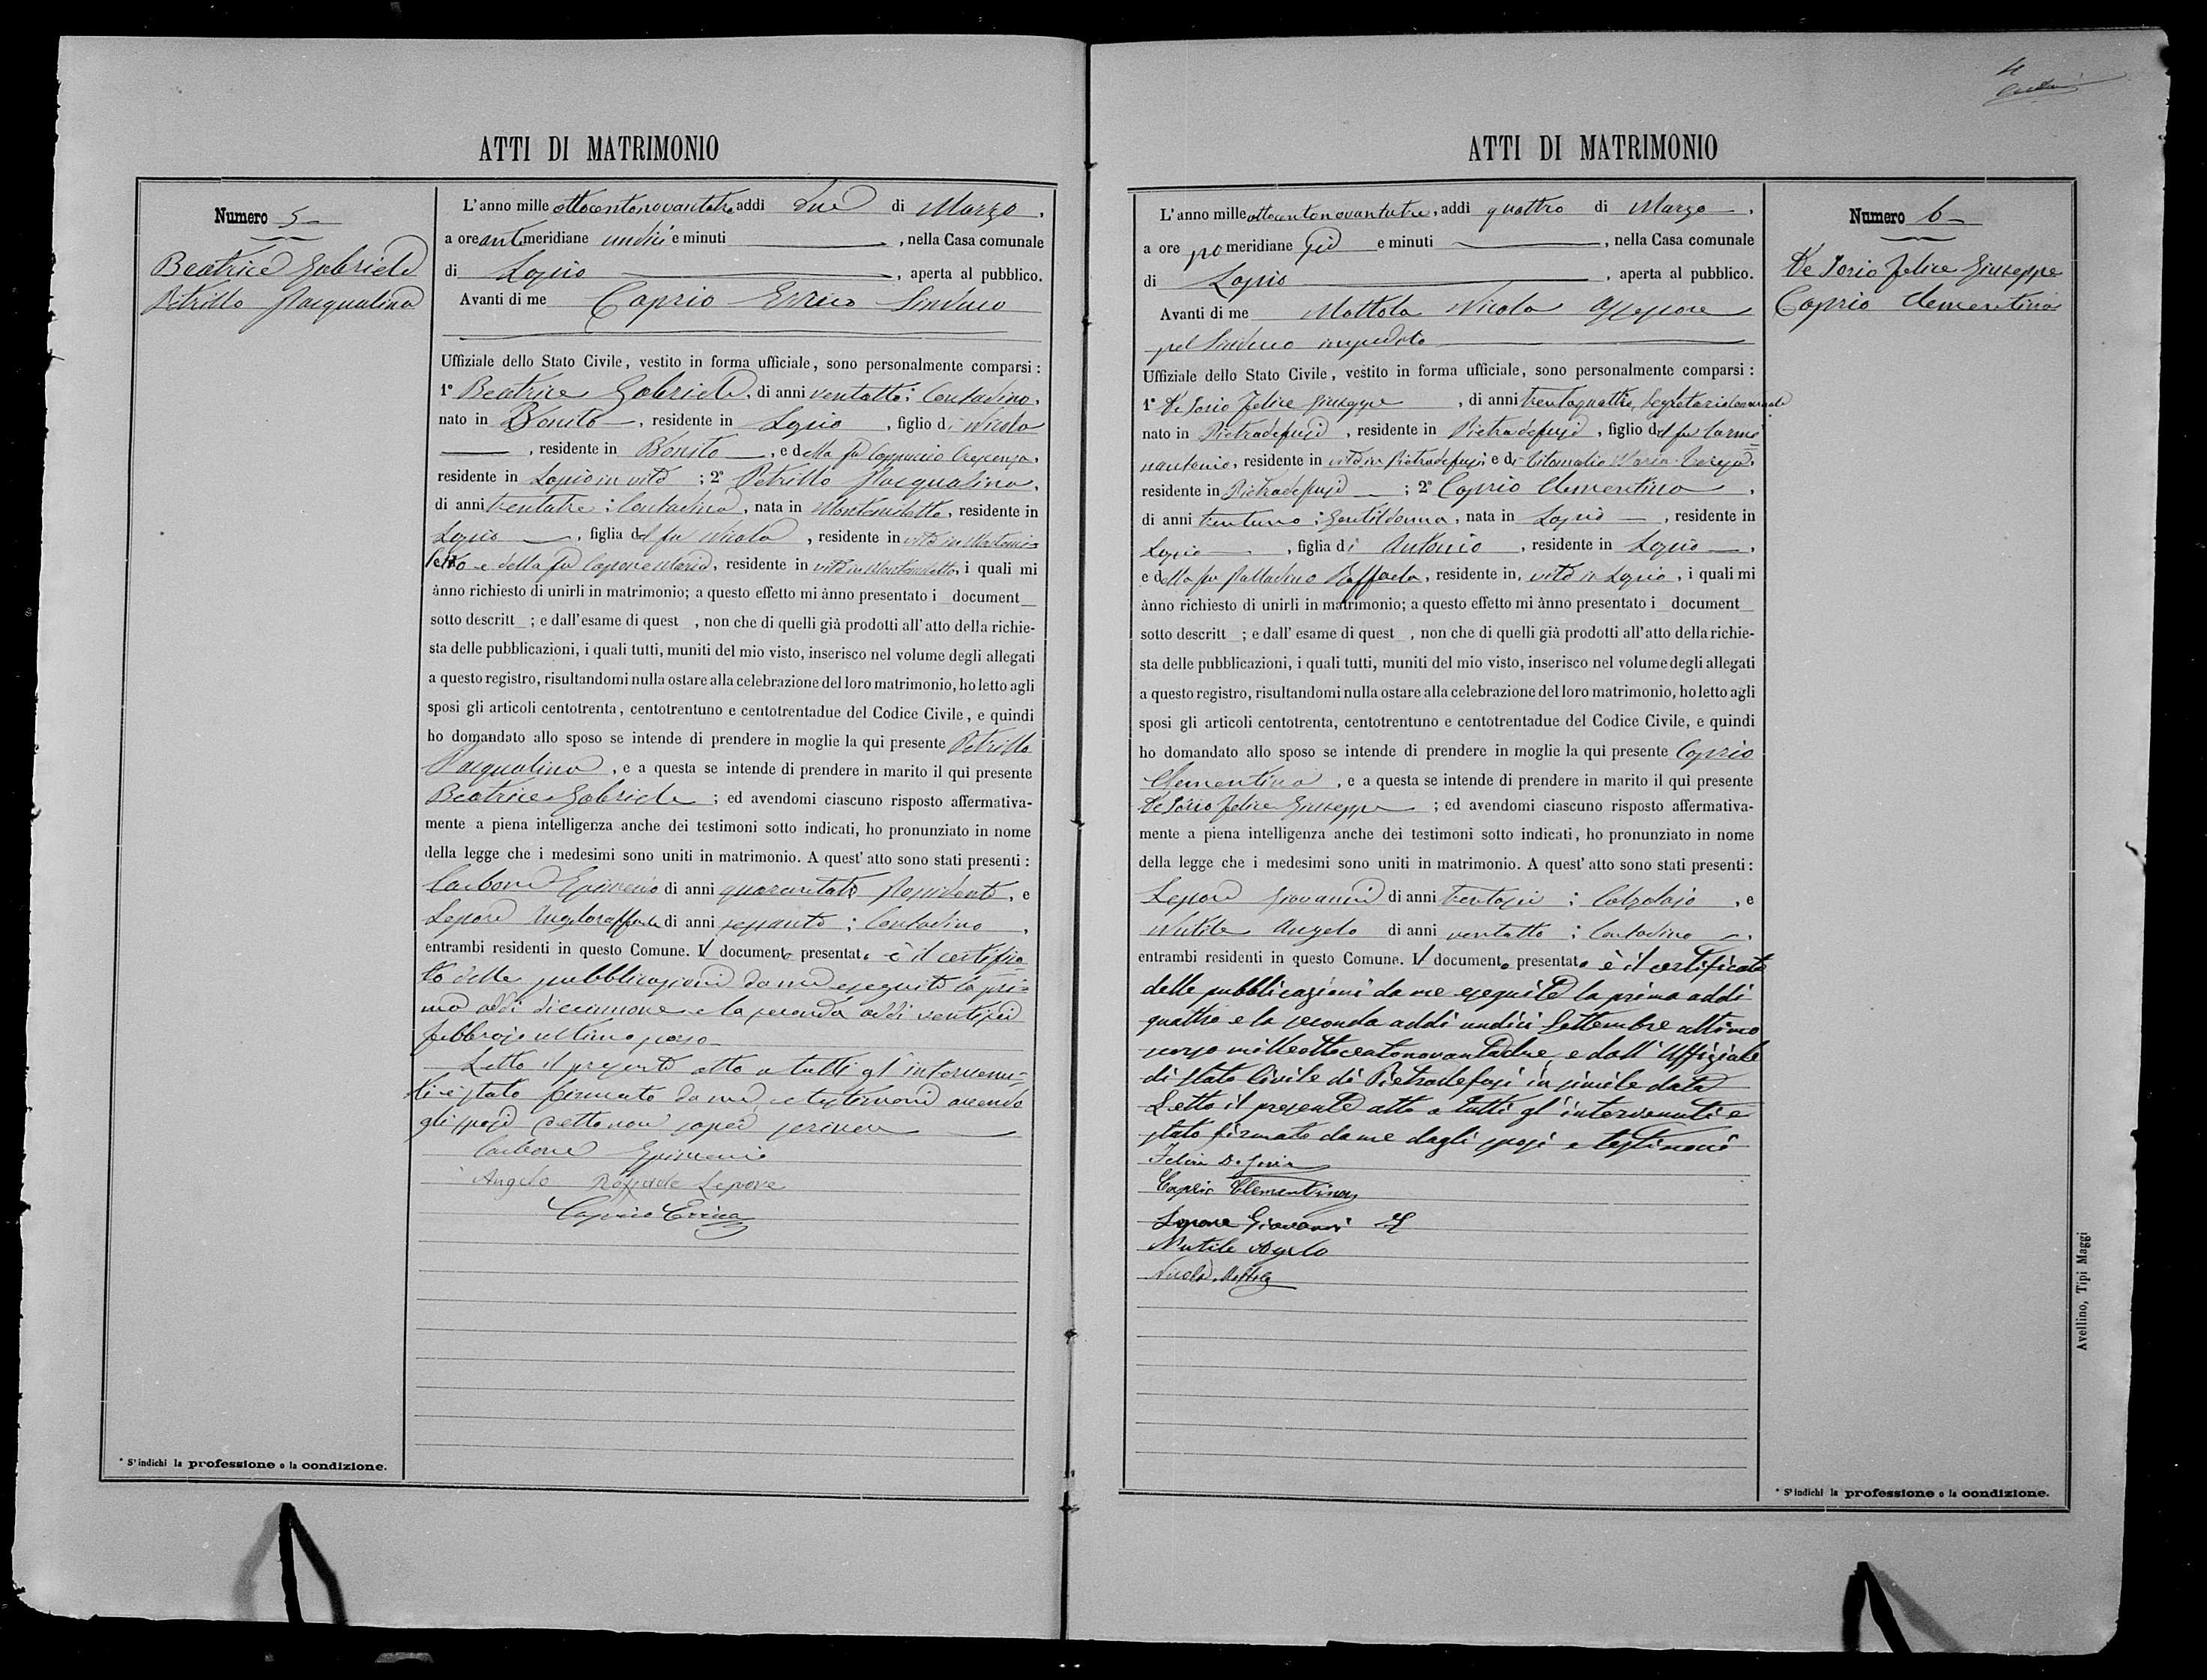 4
ATTI DI MATRIMONIO
Numero 5
Beatrice Gabriele
Petrillo Pasqualina
L'anno mille ottocentonovantatre addi due di Marzo,
a ore antimeridiane undici e minuti , nella Casa comunale
di Lapio , aperta al pubblico.
Avanti di me Caprio Errico Sindaco
Uffiziale dello Stato Civile, vestito in forma ufficiale, sono personalmente comparsi:
1° Beatrice Gabriele, di anni ventotto; Contadino,
nato in Bonito, residente in Lapio, figlio di Nicola
, residente in Bonito, e della fu Cappuccio Crescenza,
residente in Lapio in vita; 2° Petrillo Pasqualina,
di anni trentatre; Contadina, nata in Montemiletto, residente in
Lapio, figlia del fu Nicola, residente in vita in Montemi=
letto e della fu Capone Maria, residente in vita in Montemiletto, i quali mi
ànno richiesto di unirli in matrimonio; a questo effetto mi ànno presentato i document
sotto descritt ; e dall'esame di quest , non che di quelli già prodotti all'atto della richie-
sta delle pubblicazioni, i quali tutti, muniti del mio visto, inserisco nel volume degli allegati
a questo registro, risultandomi nulla ostare alla celebrazione del loro matrimonio, ho letto agli
sposi gli articoli centotrenta, centotrentuno e centotrentadue del Codice Civile, e quindi
ho domandato allo sposo se intende di prendere in moglie la qui presente Petrillo
Pasqualina, e a questa se intende di prendere in marito il qui presente
Beatrice Gabriele; ed avendomi ciascuno risposto affermativa-
mente a piena intelligenza anche dei testimoni sotto indicati, ho pronunziato in nome
della legge che i medesimi sono uniti in matrimonio. A quest'atto sono stati presenti:
Carbone Epimenio di anni , e
Lepore Angeloraffaele di anni sessanta; Contadino,
entrambi residenti in questo Comune. Il documento presentato è il certifica=
to delle pubblicazioni da me eseguite la pri=
ma addi diciannove e la seconda addi ventisei
febbraio ultimo scorso
Letto il presente atto a tutti gl'intervenu=
ti è stato firmato da me e testimoni avendo
gli sposi detto non saper scrivere
Carbone Epimenio
Angelo Raffaele Lepore
Caprio Errico
* S'indichi la professione o la condizione.
ATTI DI MATRIMONIO
Numero 6
De Iorio Felice Giuseppe
Caprio Clementina
L'anno mille ottocentonovantatre, addi quattro di Marzo,
a ore pomeridiane sei e minuti , nella Casa comunale
di Lapio , aperta al pubblico.
Avanti di me Mottola Nicola Assessore
pel Sindaco impedito
Uffiziale dello Stato Civile, vestito in forma ufficiale, sono personalmente comparsi:
1° De Iorio Felice Giuseppe, di anni trentaquattro, Segretario comunale
nato in Pietradefusi, residente in Pietradefusi, figlio del fu Carmi=
nantonio, residente in vita in Pietradefusi e di Vitamalia Maria Teresa,
residente in Pietradefusi; 2° Caprio Clementina,
di anni trentuno; Gentildonna, nata in Lapio, residente in
Lapio, figlia di Antonio, residente in Lapio,
e della fu Palladino Raffaela, residente in, vita in Lapio, i quali mi
ànno richiesto di unirli in matrimonio; a questo effetto mi ànno presentato i document
sotto descritt ; e dall'esame di quest , non che di quelli già prodotti all'atto della richie-
sta delle pubblicazioni, i quali tutti, muniti del mio visto, inserisco nel volume degli allegati
a questo registro, risultandomi nulla ostare alla celebrazione del loro matrimonio, ho letto agli
sposi gli articoli centotrenta, centotrentuno e centotrentadue del Codice Civile, e quindi
ho domandato allo sposo se intende di prendere in moglie la qui presente Caprio
Clementina, e a questa se intende di prendere in marito il qui presente
De Iorio Felice Giuseppe; ed avendomi ciascuno risposto affermativa-
mente a piena intelligenza anche dei testimoni sotto indicati, ho pronunziato in nome
della legge che i medesimi sono uniti in matrimonio. A quest'atto sono stati presenti:
Lepore Giovanni di anni trentasei; Calzolaio, e
Nutile Angelo di anni ventotto; Contadino,
entrambi residenti in questo Comune. Il documento presentato è il certificato
delle pubblicazioni da me eseguite la prima addi
quattro e la seconda addi undici Settembre ultimo
scorso milleottocentonovantadue e dall'Uffiziale
di Stato Civile di Pietradefusi in simile data
Letto il presente atto a tutti gl'intervenuti è
stato firmato da me dagli sposi e testimoni
Felice De Iorio
Caprio Clementina
Lepore Giovanni
Nutile Angelo
Nicola Mottola
* S'indichi la professione o la condizione.
Avellino, Tipi Maggi